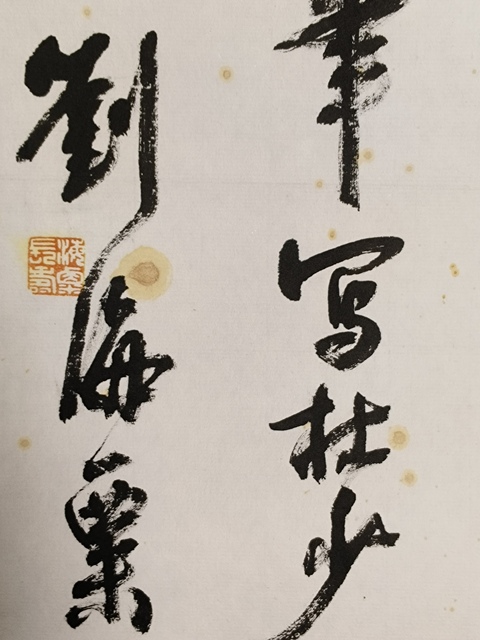 写杜少
劉海粟
海粟
長壽